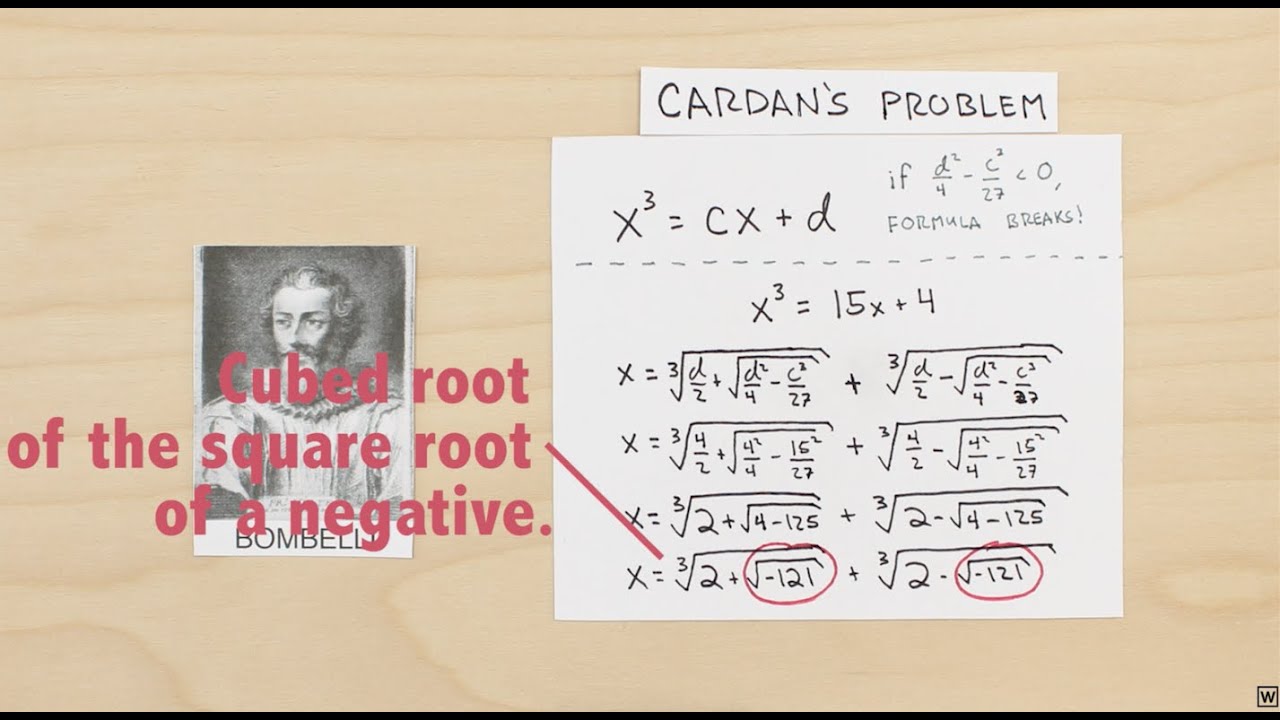 CARDAN'S PROBLEM
if d²/4 - c³/27 < 0,
FORMULA BREAKS!
x³ = cx + d
x³ = 15x + 4
x = ³√(d/2 + √(d²/4 - c³/27)) + ³√(d/2 - √(d²/4 - c³/27))
x = ³√(4/2 + √(4²/4 - 15²/27)) + ³√(4/2 - √(4²/4 - 15²/27))
x = ³√(2 + √(4-125)) + ³√(2 - √(4-125))
x = ³√(2 + √(-121)) + ³√(2 - √(-121))
Cubed root
of the square root
of a negative.
BOMBELLI
W